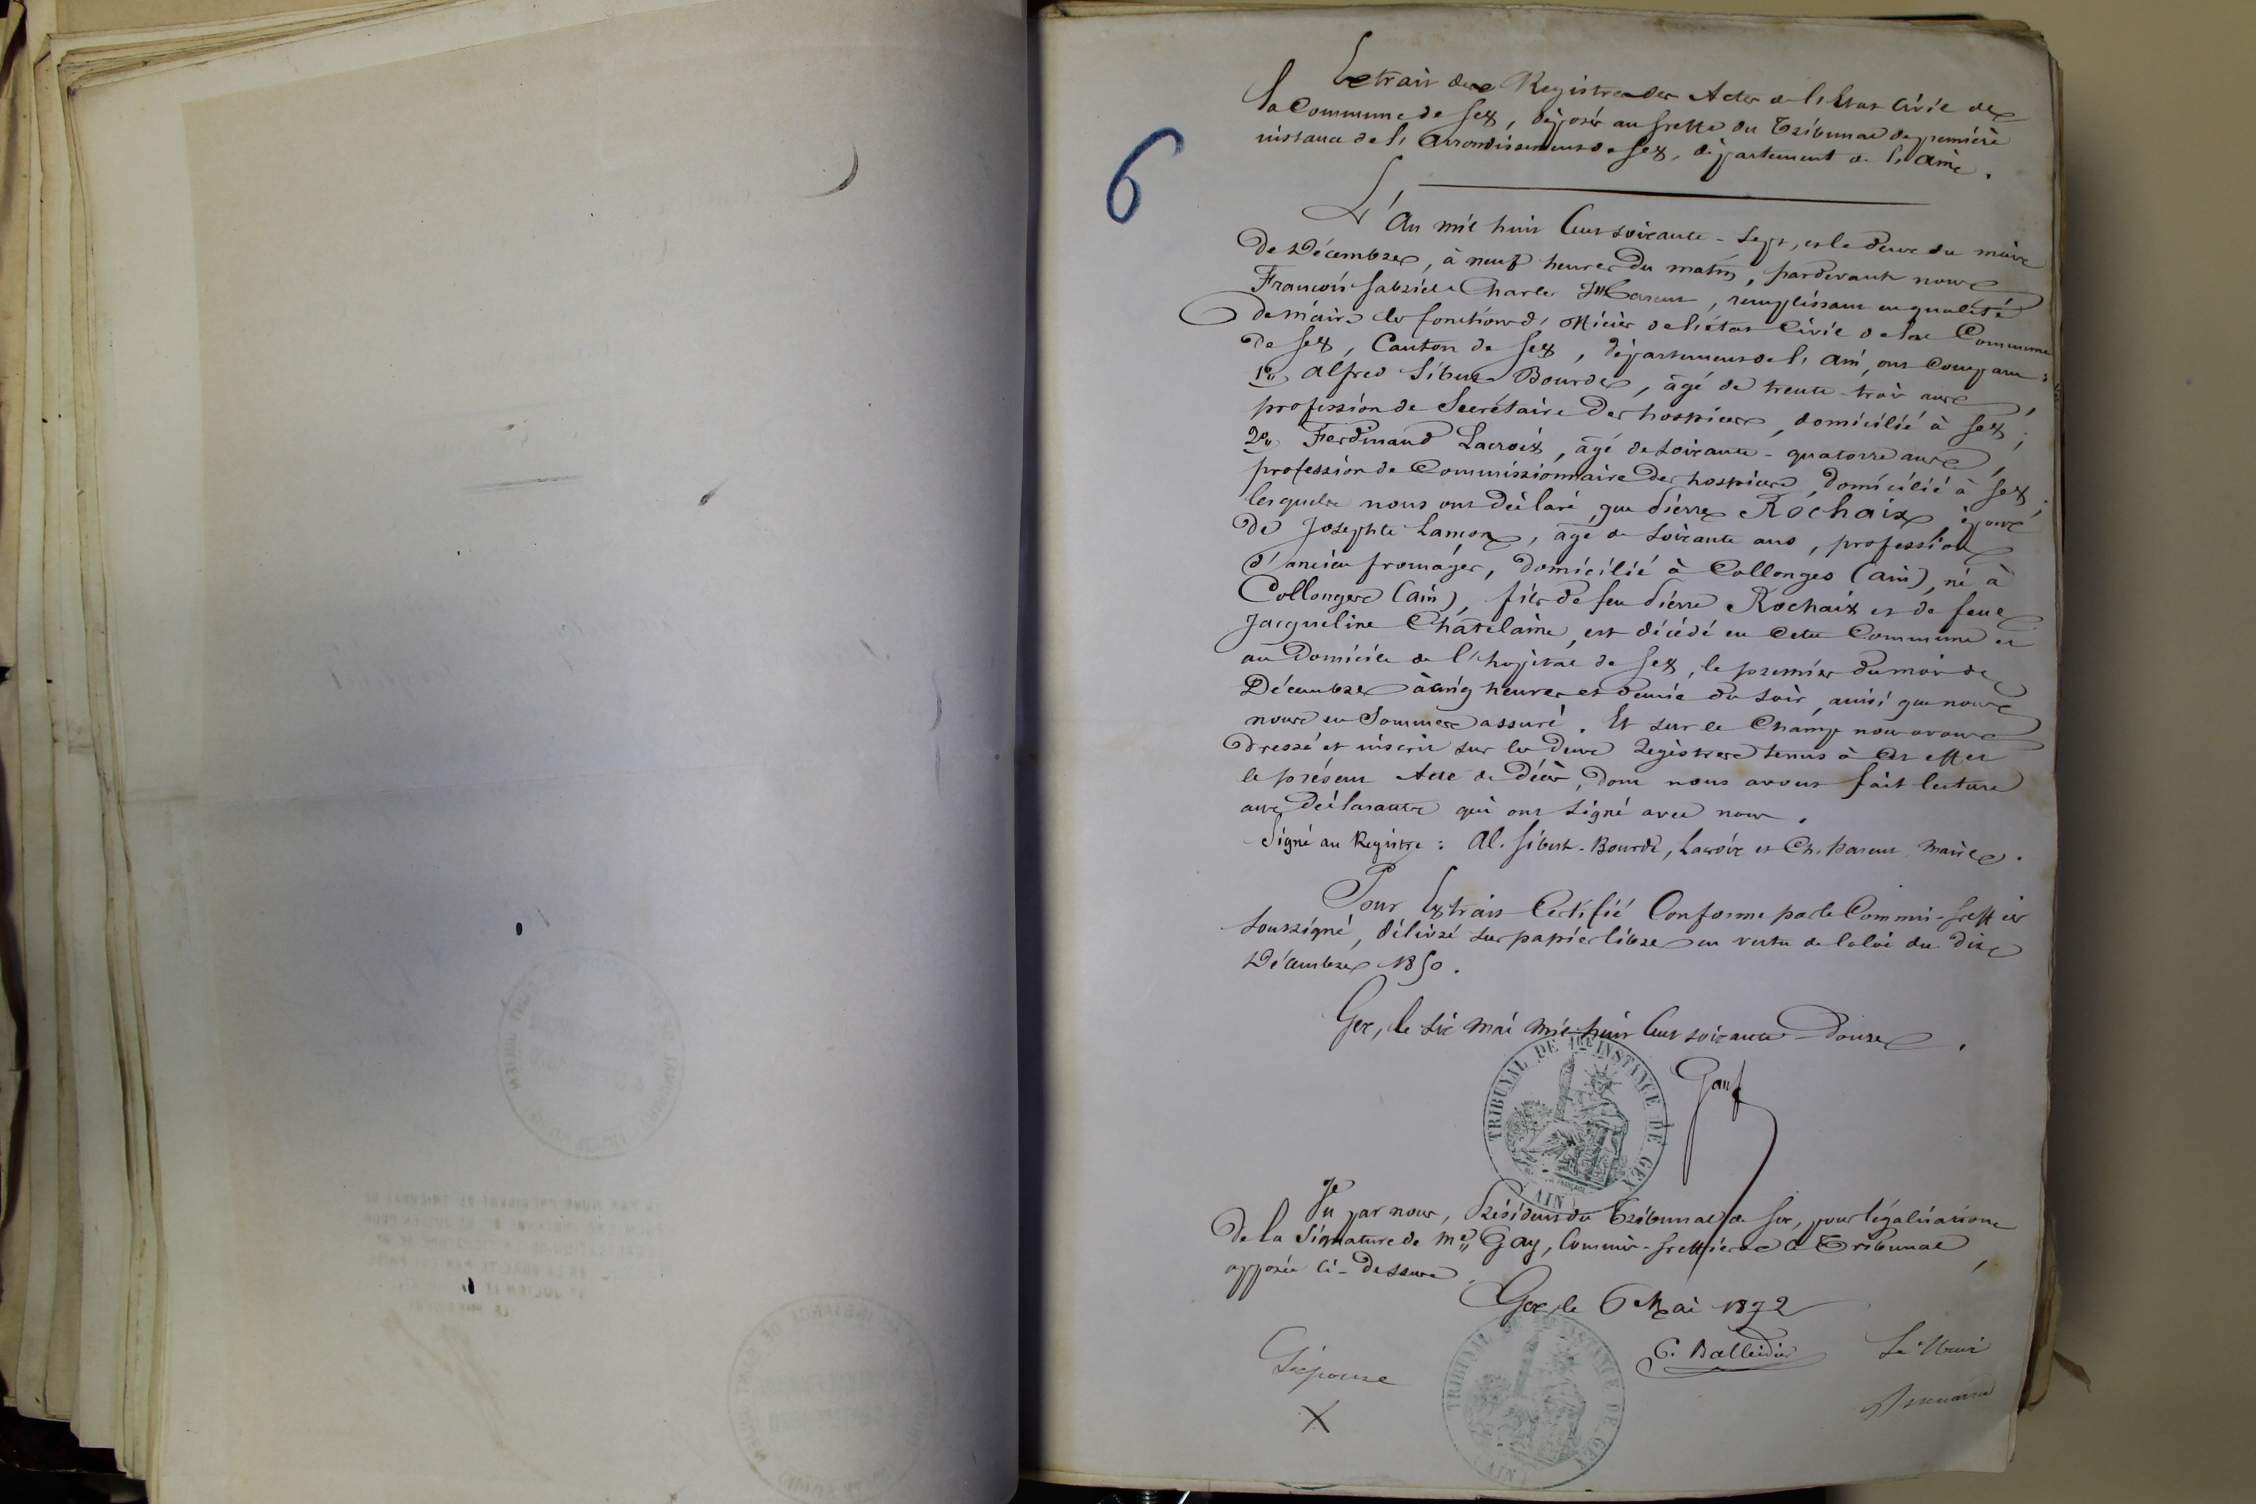 6
Extrait des Registres des Actes de l'Etat Civil de
la Commune de Gex, déposés au Greffe du Tribunal de première
instance de l'Arrondissement de Gex, département de l'Ain.
L'An mil huit Cent soixante-sept, et le deux du mois
de Décembre, à neuf heures du matin, pardevant nous
François Gabriel Charles, remplissant en qualité
de maire les fonctions d'Officier de l'état Civil de la Commune
de Gex, Canton de Gex, département de l'Ain, ont Comparu:
1° Alfred Gibert Bourde, âgé de trente-trois ans,
profession de Secrétaire des hospices, domicilié à Gex;
2° Ferdinand Lacroix, âgé de soixante-quatorze ans,
profession de Commissionnaire des hospices, domicilié à Gex;
lesquels nous ont déclaré que Pierre Rochaix, époux
de Josephte Lamon, âgé de soixante ans, profession
d'ancien fromager, domicilié à Collonges (Ain), né à
Collonges (Ain), fils de feu Pierre Rochaix et de feue
Jacqueline Chatelaine, est décédé en cette Commune et
au Domicile de l'hopital de Gex, le premier du mois de
Décembre à cinq heures et demie du soir, ainsi que nous
nous en Sommes assuré. Et sur le Champ nous avons
dressé et inscrit sur les deux Registres tenus à cet effet
le présent Acte de Décès, dont nous avons fait lecture
aux Déclarants qui ont signé avec nous.
Signé au Registre: Al. Gibert-Bourde, Lacroix et Ch. Maire.
Pour Extrait Certifié Conforme par le Commis-Greffier
soussigné, délivré sur papier libre en vertu de la loi du dix
Décembre 1850.
Gex, le six mai mil huit Cent soixante-Douze.
TRIBUNAL DE 1RE INSTANCE DE GEX
(AIN)
Gay
Vu par nous, Président du Tribunal de Gex, pour légalisation
de la Signature de Me Gay, Commis-greffier de ce Tribunal,
apposée ci-dessus.
Gex, le 6 Mai 1872
TRIBUNAL DE 1RE INSTANCE DE GEX
(AIN)
X